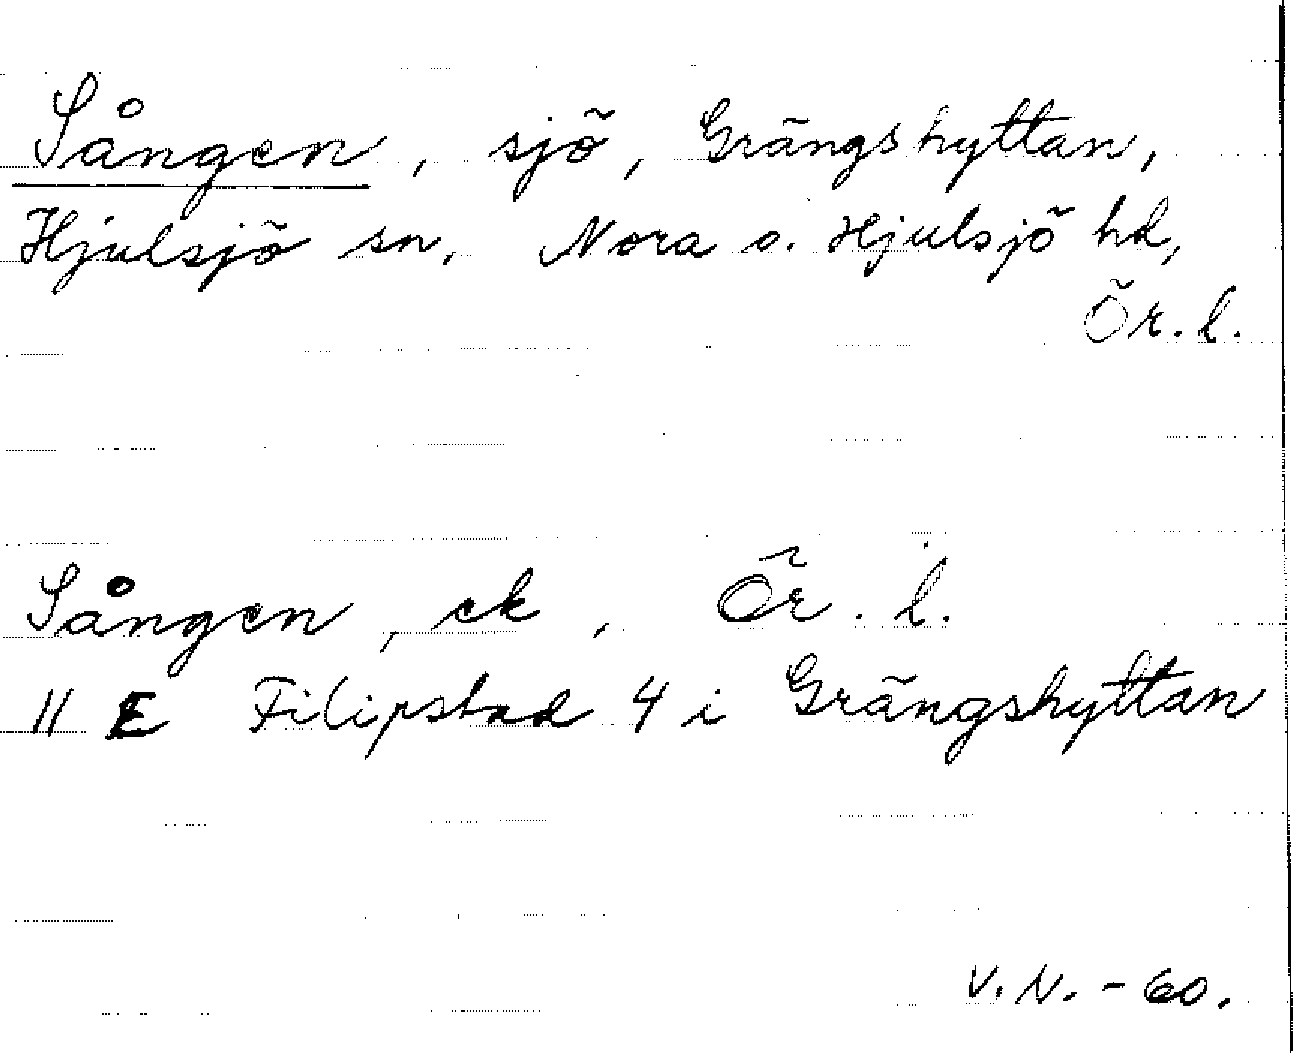 Sången, sjö, Grängshyttan,
Hjulsjö sn, Nora o. Hjulsjö hd,
Ör. l.
Sången, ek, Ör. l.
11 E Filipstad 4 i Grängshyttan
V. N. - 60.